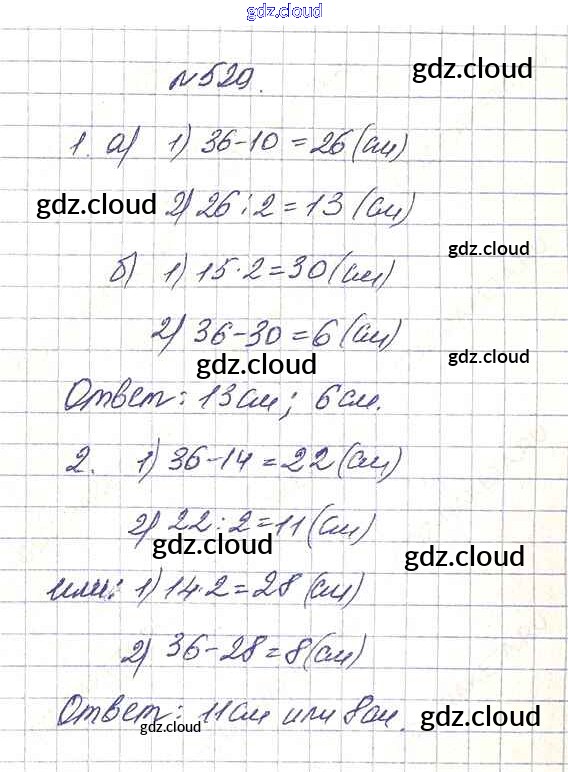 gdz.cloud
gdz.cloud
№529.
1. а) 1) 36-10=26(см)
gdz.cloud 2) 26:2=13 (см)
gdz.cloud
б) 1) 15·2=30(см)
2) 36-30=6(см)
gdz.cloud gdz.cloud
Ответ: 13см; 6см.
2. 1) 36-14=22(см)
2) 22:2=11(см)
gdz.cloud gdz.cloud
или: 1) 14·2=28(см)
2) 36-28=8(см)
Ответ: 11см или 8см.
gdz.cloud gdz.cloud